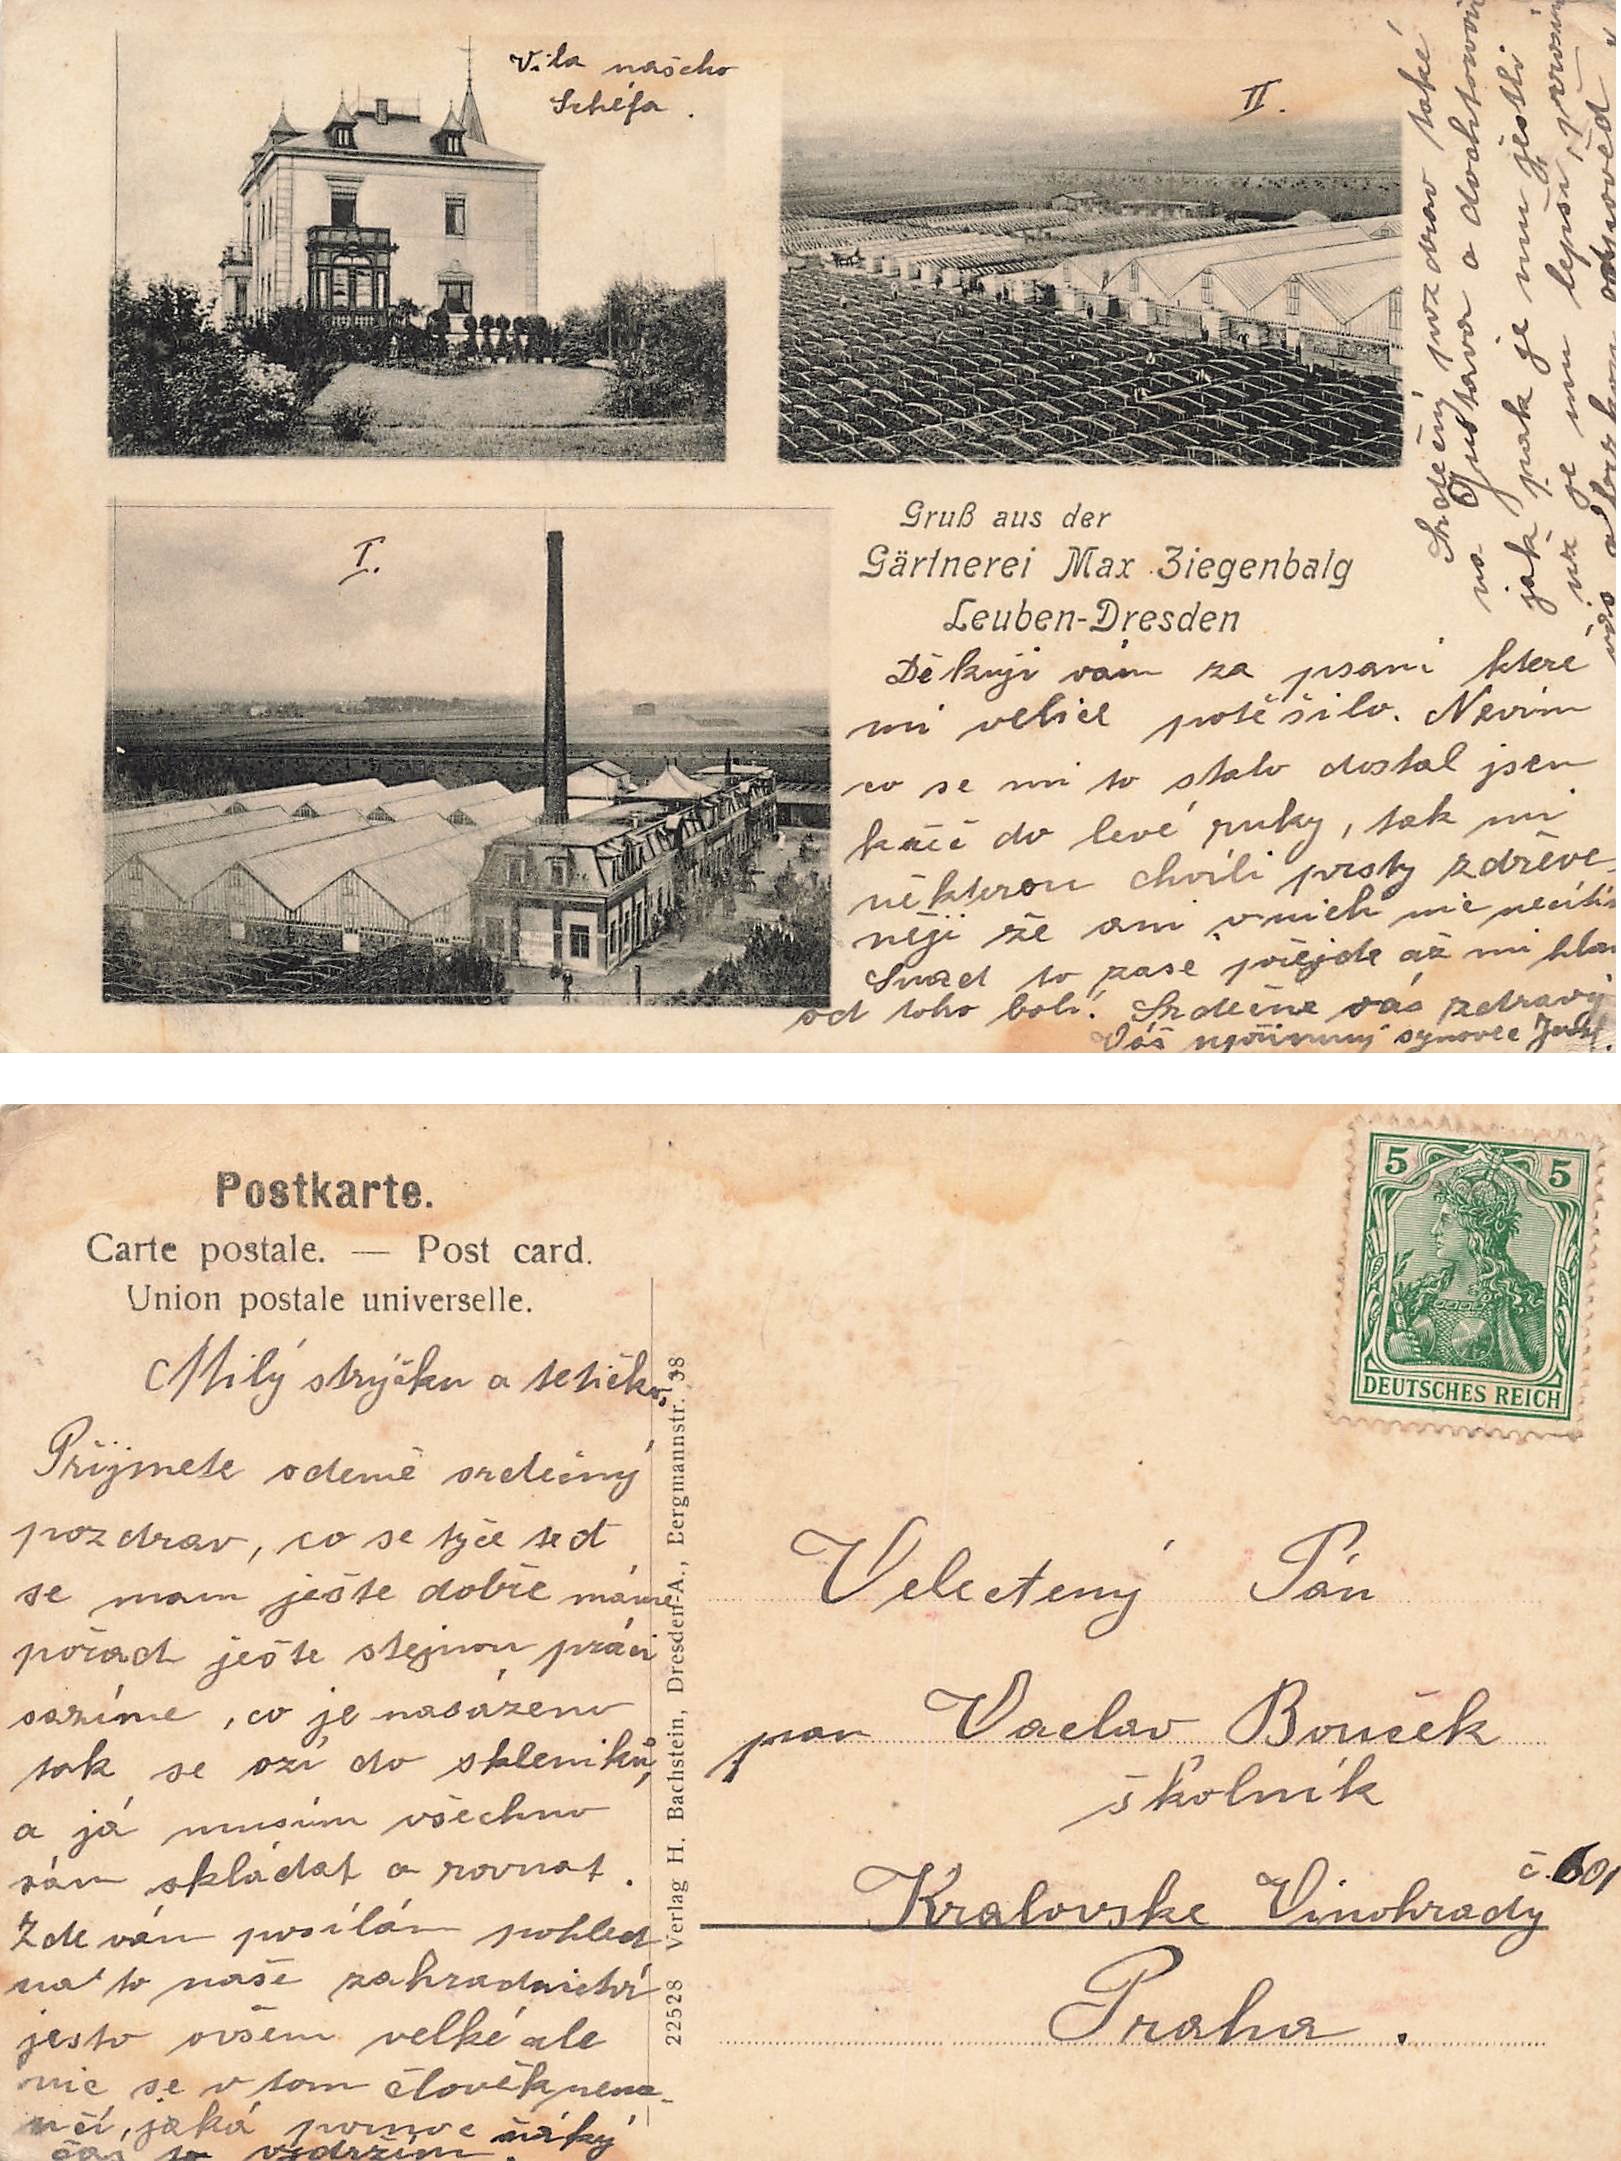 Vila našeho
Schéfa.
II.
I.
Gruß aus der
Gärtnerei Max Ziegenbalg
Leuben-Dresden
Děkuji vám za psaní ktere
mi velice potěšilo. Nevím
co se mi to stalo dostal jsem
do levé ruky, tak mi
některou chvíli prsty zdřeve-
něji že ani v nich nic necítím
Snad to zase přejde až mi hla
od toho bolí. Srdečne vás zdraví
Váš upřímný synovec Josef.
Srdečný pozdrav také
na Gustava a
jak pak je mu jestli
už je mu lepši, prosím
vás odpověd
Postkarte.
Carte postale. — Post card.
Union postale universelle.
Milý strýčku a tetičko!
Přijmete odemě srdečný
pozdrav, co se tyče teď
se mam ješte dobře máme
pořad ješte stejnou práci
sazíme, co je nasázeno
tak se ozí do skleniků,
a já musím všechno
sám skládat a rovnat.
Zde vám posílám pohled
na to naše zahradnictví
jesto ovšem velké ale
nic se v tom člověk nena-
učí, jaká pomoc ňáký
čas to vydržím.
22528 Verlag H. Bachstein, Dresden-A., Bergmannstr. 38
5 5
DEUTSCHES REICH
Velectený Pán
pan Vaclav Bouček
školník
č. 601
Kralovske Vinohrady
Praha.